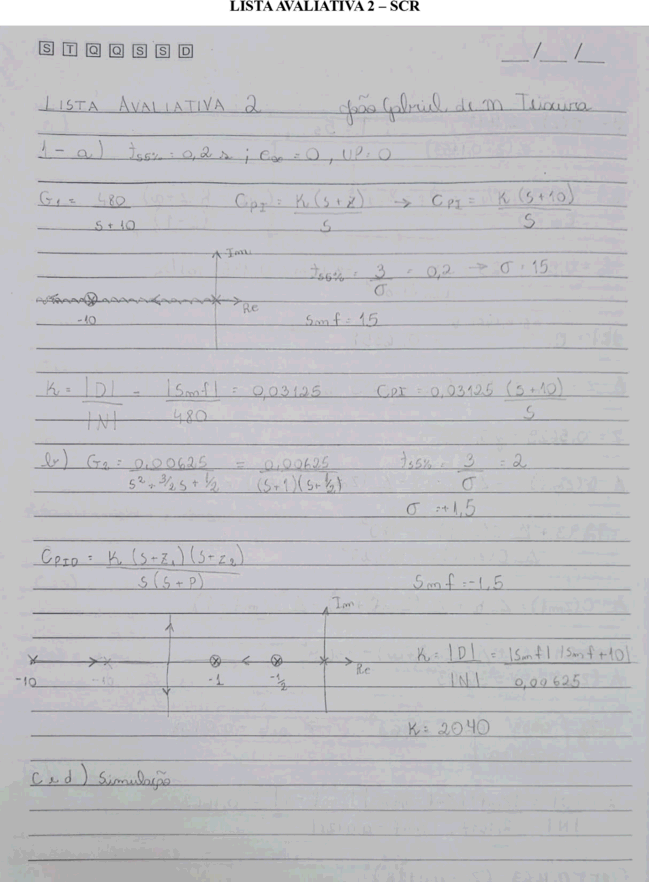 LISTA AVALIATIVA 2 – SCR
S T Q Q S S D __/__/__
LISTA AVALIATIVA 2 João Gabriel de M Teixeira
1- a) ts5% = 0,2 s ; e∞ = 0, UP = 0
G1 = 480 / (s+10) CPI = K (s+z) / s → CPI = K (s+10) / S
Im
ts5% = 3/σ = 0,2 → σ = 15
Re
-10
Smf = 15
K = |D| / |N| = |Smf| / 480 = 0,03125 CPI = 0,03125 (s+10) / S
b) G2 = 0,00625 / (s² + 3/2 s + 1/2) = 0,00625 / (s+1)(s+1/2) ts5% = 3/σ = 2
σ = +1,5
CPID = K (s+z1)(s+z2) / s(s+p)
Smf = -1,5
Im
Re
-10 -10 -1 -1/2
K = |D| / |N| = |Smf| |Smf+10| / 0,00625
K = 2040
c e d) Simulação